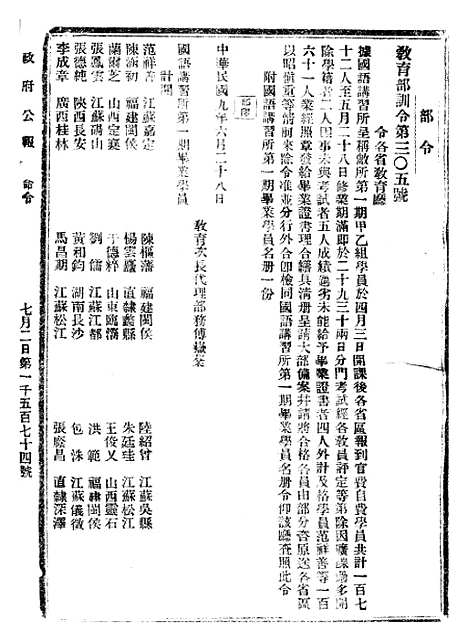 部令
教育部訓令第三〇五號
令各省教育廳
據國語講習所呈稱敝所第一期甲乙組學員於四月三日開課後各省區報到官費自費學員共計一百七
十二人至五月二十八日修業期滿即於二十九三十兩日分門考試經各教員評定等第除因曠課過多開
除學籍者二人因事未與考試者五人成績過劣未能給予畢業證書者四人外計及格學員范祥善等一百
六十一人業經照章發給畢業證書理合繕具清册呈請大部備案并請將合格各員由部分咨原送各省區
以昭愼重等請前來除令准並分行外合卽檢同國語講習所第一期畢業學員名册令仰該廳查照此令
附國語講習所第一期畢業學員名册一份
中華民國九年六月二十八日
教育次長代理部務傅嶽棻
國語講習所第一期畢業學員
計開
范祥善 江蘇嘉定 陳樞藩 福建閩侯 陸紹曾 江蘇吳縣
陳涵初 福建閩侯 楊雲 直隸蠡縣 朱廷珪 江蘇松江
蘭爾芝 山西定襄 于德粹 山東臨淄 王俊又 山西靈石
張鳳雲 江蘇碭山 劉儒 江蘇江都 洪範 福建閩侯
張德純 陝西長安 黃和鈞 湖南長沙 包 江蘇儀徵
李成章 廣西桂林 馬昌期 江蘇松江 張慶昌 直隸深澤
政府公報 命令 七月二日第一千五百七十四號